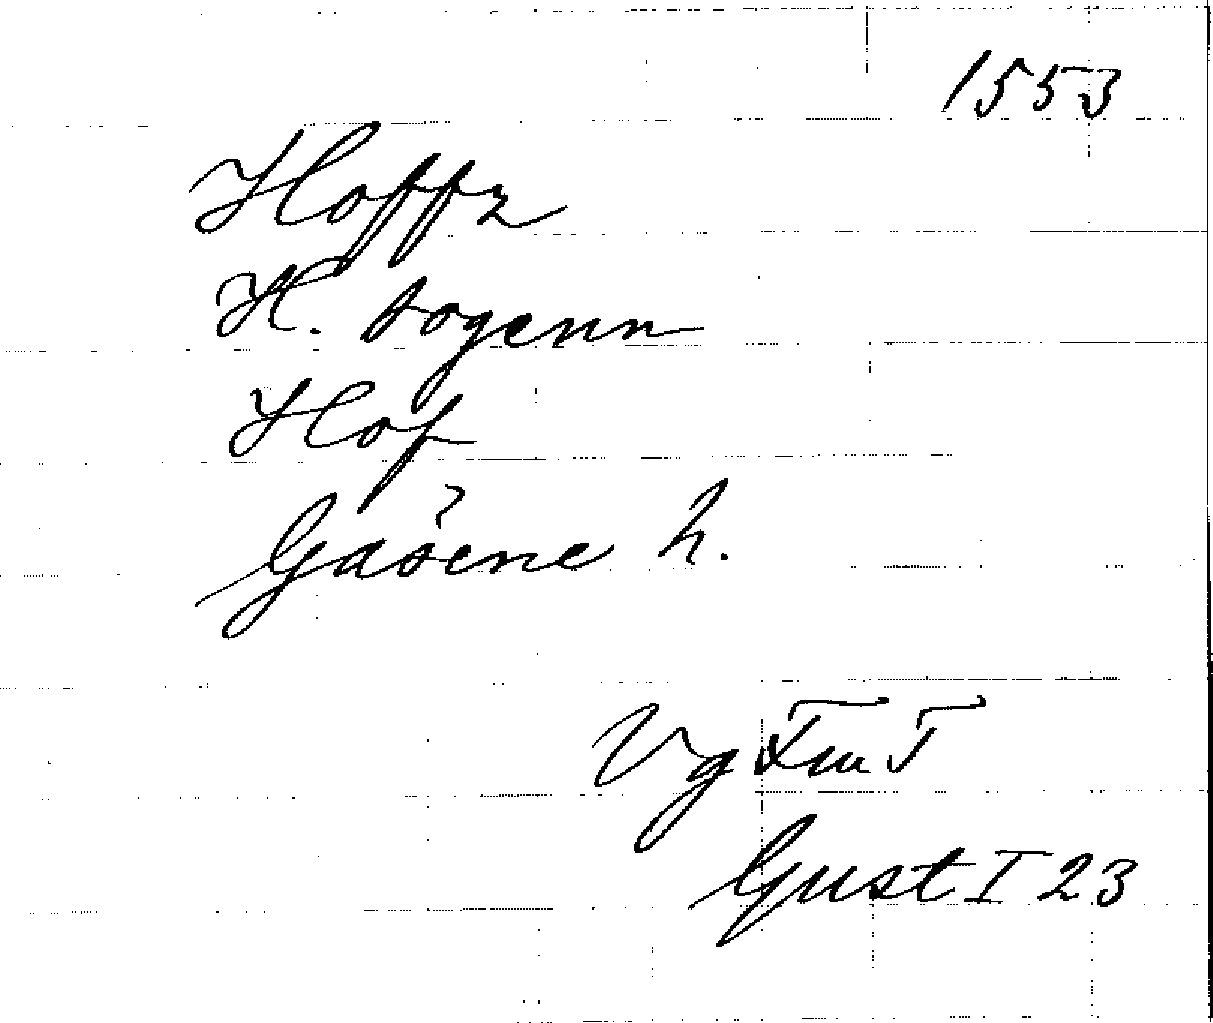 1553
Hoffz
H. sogenn
Hof
Gåsene h.
Vg Tm T
Gust I 23